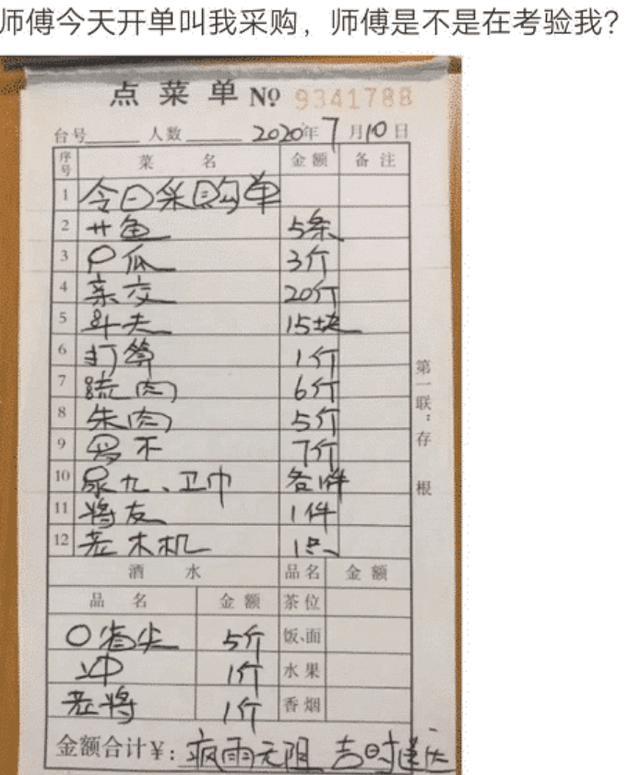 师傅今天开单叫我采购，师傅是不是在考验我？
点菜单 № 9341788
台号 人数 2020年7月10日
序号 菜名 金额 备注
1 今日采购单
2 廿鱼 5条
3 口瓜 3斤
4 亲交 20斤
5 斗夫 15块
6 打算 1斤
7 肉 6斤
8 朱肉 5斤
9 不 7斤
10 尿九、卫巾 各1件
11 将友 1件
12 老木机 1只
第一联：存根
酒水 品名 金额
品名 金额 茶位
〇省尖 5斤 饭、面
冲 1斤 水果
老将 1斤 香烟
金额合计￥：疯雨无阻 吉时送